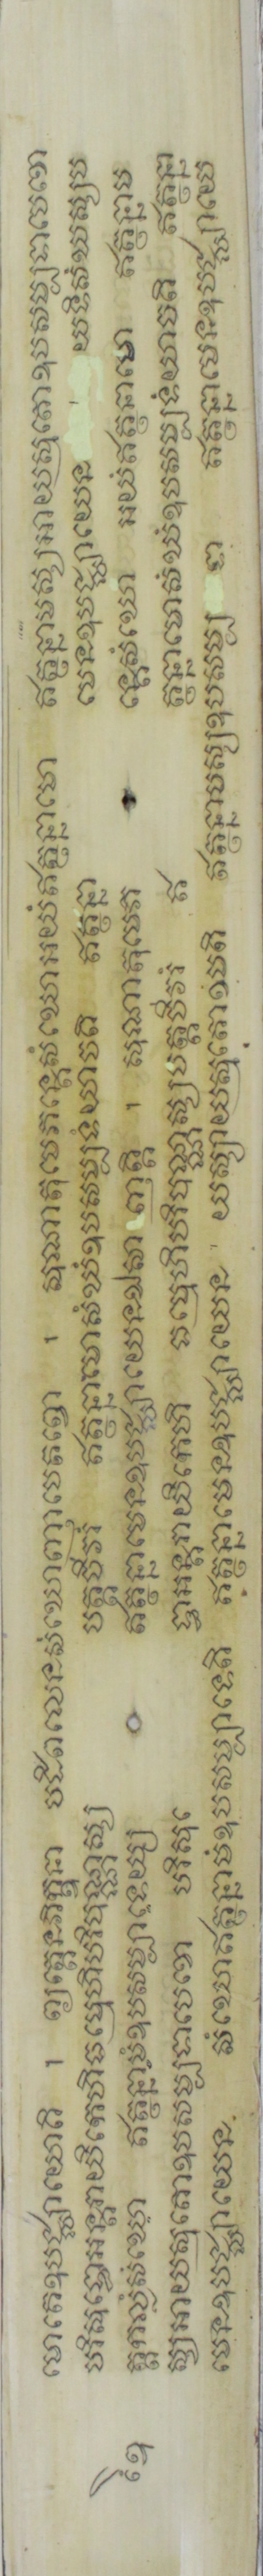 មោតេឧបជ្ឈាយោតិ ។ ព្យត្តេនភិក្ខុនា បដិពលេនសំឃោញាបេតព្វោ ។ សុណាតុមេភន្តេសំឃោអយំឥត្ថន្នាមោ ឥត្ថន្នាមស្សអាយស្មតោឧបសម្បទាបេខោ
បរិសុទ្ធោអន្តរាយិកេហិធម្មេហិបរិបុណ្ណស្ស បត្តចីវរំ ឥត្ថន្នាមោសំឃំឧបសម្បទំយាចតិ ឥត្ថន្នា មេនឧបជ្ឈាយេន ។ យទិសំឃស្សប
ត្តកល្លំសំឃោ ឥត្ថន្នាមំឧបសម្បាទេយ្យ ឥត្ថន្នាមេនឧបជ្ឈាយេនឯសា ញត្តិ ។ សុណាតុមេភ ន្តេសំឃោ អយំឥត្ថនាមោ ឥត្ថន្នាម
ស្សអាយស្មតោឧបសម្បទាបេខោ បរិសុទ ្ធោអន្តរាយិកេហិ ធម្មេហិបរិបុណ្ណស្សបត្តចីវរំ ឥ ត្ថន្នាមោសំឃំឧបសម្បទំយាចតិ ឥត្ថន្នា
មេនឧបជ្ឈាយេន សំឃោឥត្ថន្នាមំឧបសម្បាទេតិ ឥត្ថន្នាមេនឧបជ្ឈាយេន ។ យស្សាយស្មតោខមតិ ឥត្ថន្នាមស្សឧបសម្ប ទា ឥត្ថន្នាមេនឧបជ្ឈាយេ